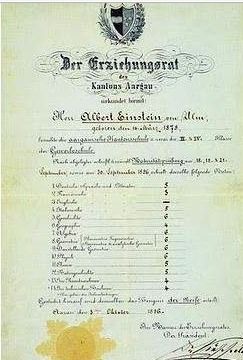 Der Erziehungsrat
des
Kantons Aargau
urkundet hiemit:
Herr Albert Einstein von Ulm,
geboren den 14. März 1879,
besuchte die aargauische Kantonsschule & zwar die III. & IV. Klasse
der Gewerbeschule.
Nach abgelegter schriftl. & mündl. Maturitätsprüfung am 18., 19. & 21.
September, sowie am 30. September 1896, erhielt derselbe folgende Noten:
1. Deutsche Sprache und Litteratur 5
2. Französische
3. Englische —
4. Italienische 5
5. Geschichte 6
6. Geographie 4
7. Algebra 6
8. Geometrie 6
9. Darstellende Geometrie 6
10. Physik 6
11. Chemie 5
12. Naturgeschichte 5
13. Im Kunstzeichnen 4
14. Im technischen Zeichnen 4
Gestützt hierauf wird demselben das Zeugnis der Reife erteilt.
Aarau den 3ten Oktober 1896.
Im Namen des Erziehungsrates,
Der Präsident: